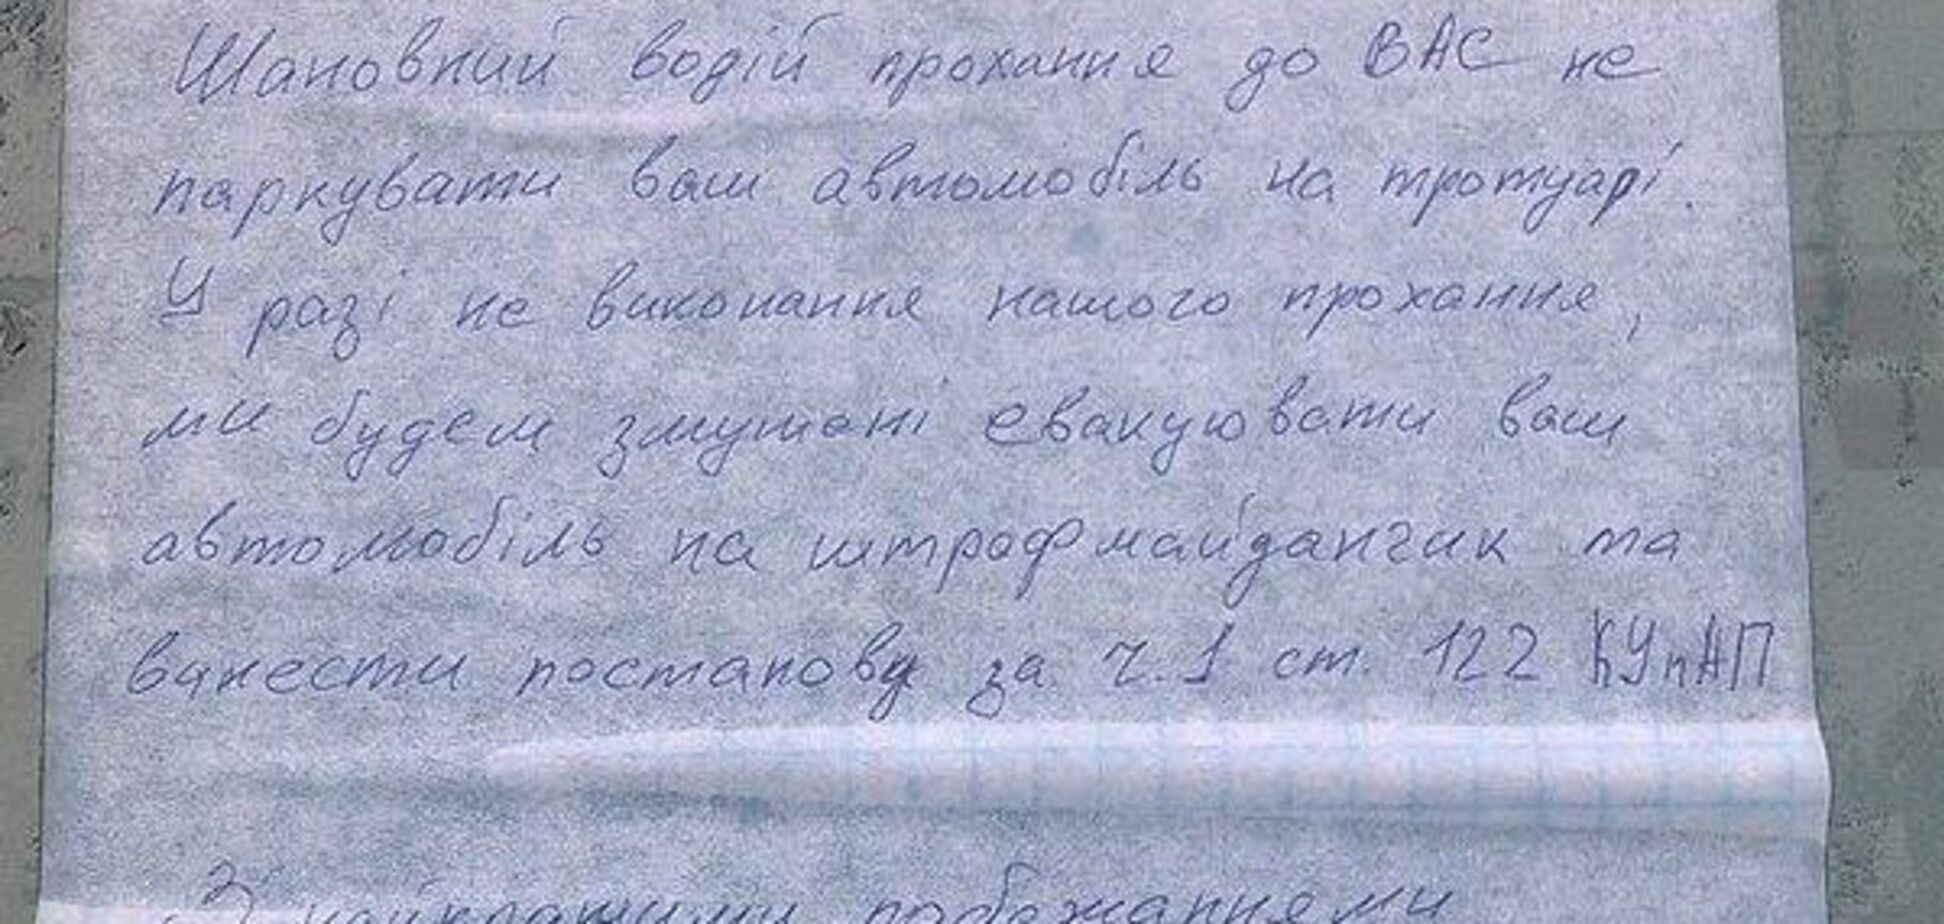 Шановний водій прохання до ВАС не
паркувати ваш автомобіль на тротуарі.
У разі не виконання нашого прохання,
ми будем змушені евакуювати ваш
автомобіль на штрафмайданчик та
винести постанову за ч.1 ст. 122 КУпАП
З найкращими побажаннями